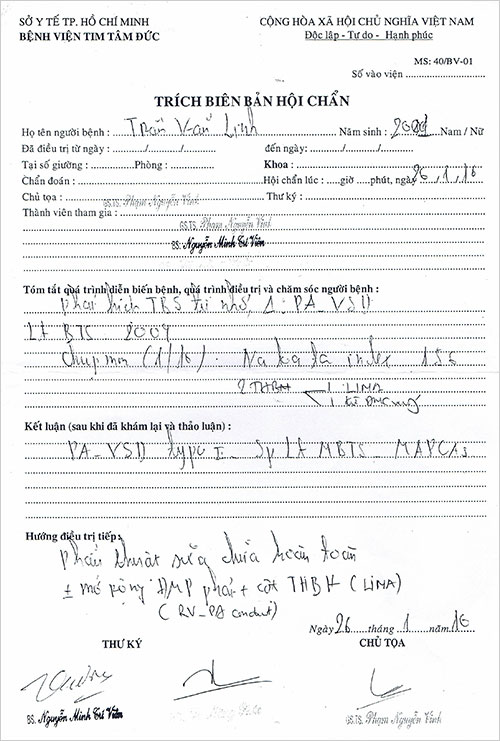 SỞ Y TẾ TP. HỒ CHÍ MINH
BỆNH VIỆN TIM TÂM ĐỨC
CỘNG HÒA XÃ HỘI CHỦ NGHĨA VIỆT NAM
Độc lập - Tự do - Hạnh phúc
MS: 40/BV-01
Số vào viện
TRÍCH BIÊN BẢN HỘI CHẨN
Họ tên người bệnh : Trần Văn Linh Năm sinh : Nam / Nữ
Đã điều trị từ ngày : ....../....../...... đến ngày: ....../....../......
Tại số giường : Phòng : Khoa :
Chẩn đoán : Hội chẩn lúc : ....giờ ....phút, ngày 26 , 1 , 16
Chủ tọa : GS.TS. Phạm Nguyễn Vinh Thư ký :
Thành viên tham gia : GS.TS. Phạm Nguyễn Vinh
BS. Nguyễn Minh Trí Viên
Tóm tắt quá trình diễn biến bệnh, quá trình điều trị và chăm sóc người bệnh :
Phát hiện TBS từ nhỏ, Δ : PA-VSD
Lt BTS 2009
Chụp (1/16). Nakata index 156
2 THBH 1 LIMA
1 từ ĐMC
Kết luận (sau khi đã khám lại và thảo luận) :
PA-VSD type I - Sp Lt MBTS - MAPCAs
Hướng điều trị tiếp:
Phẫu thuật sửa chữa hoàn toàn
± mở rộng ĐMP phải + cột THBH (LIMA)
(RV-PA conduit)
Ngày 26 tháng 1 năm 16
THƯ KÝ
CHỦ TỌA
BS. Nguyễn Minh Trí Viên
GS.TS. Phạm Nguyễn Vinh